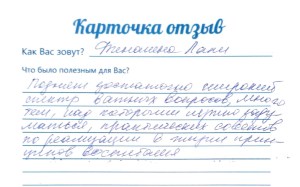 Карточка отзыв
Как Вас зовут?
Что было полезным для Вас?
Поднят достаточно широкий
спектр важных вопросов, много
тем, над которыми нужно поду
мать, практических советов
по реализации в жизни прин
ципов воспитания